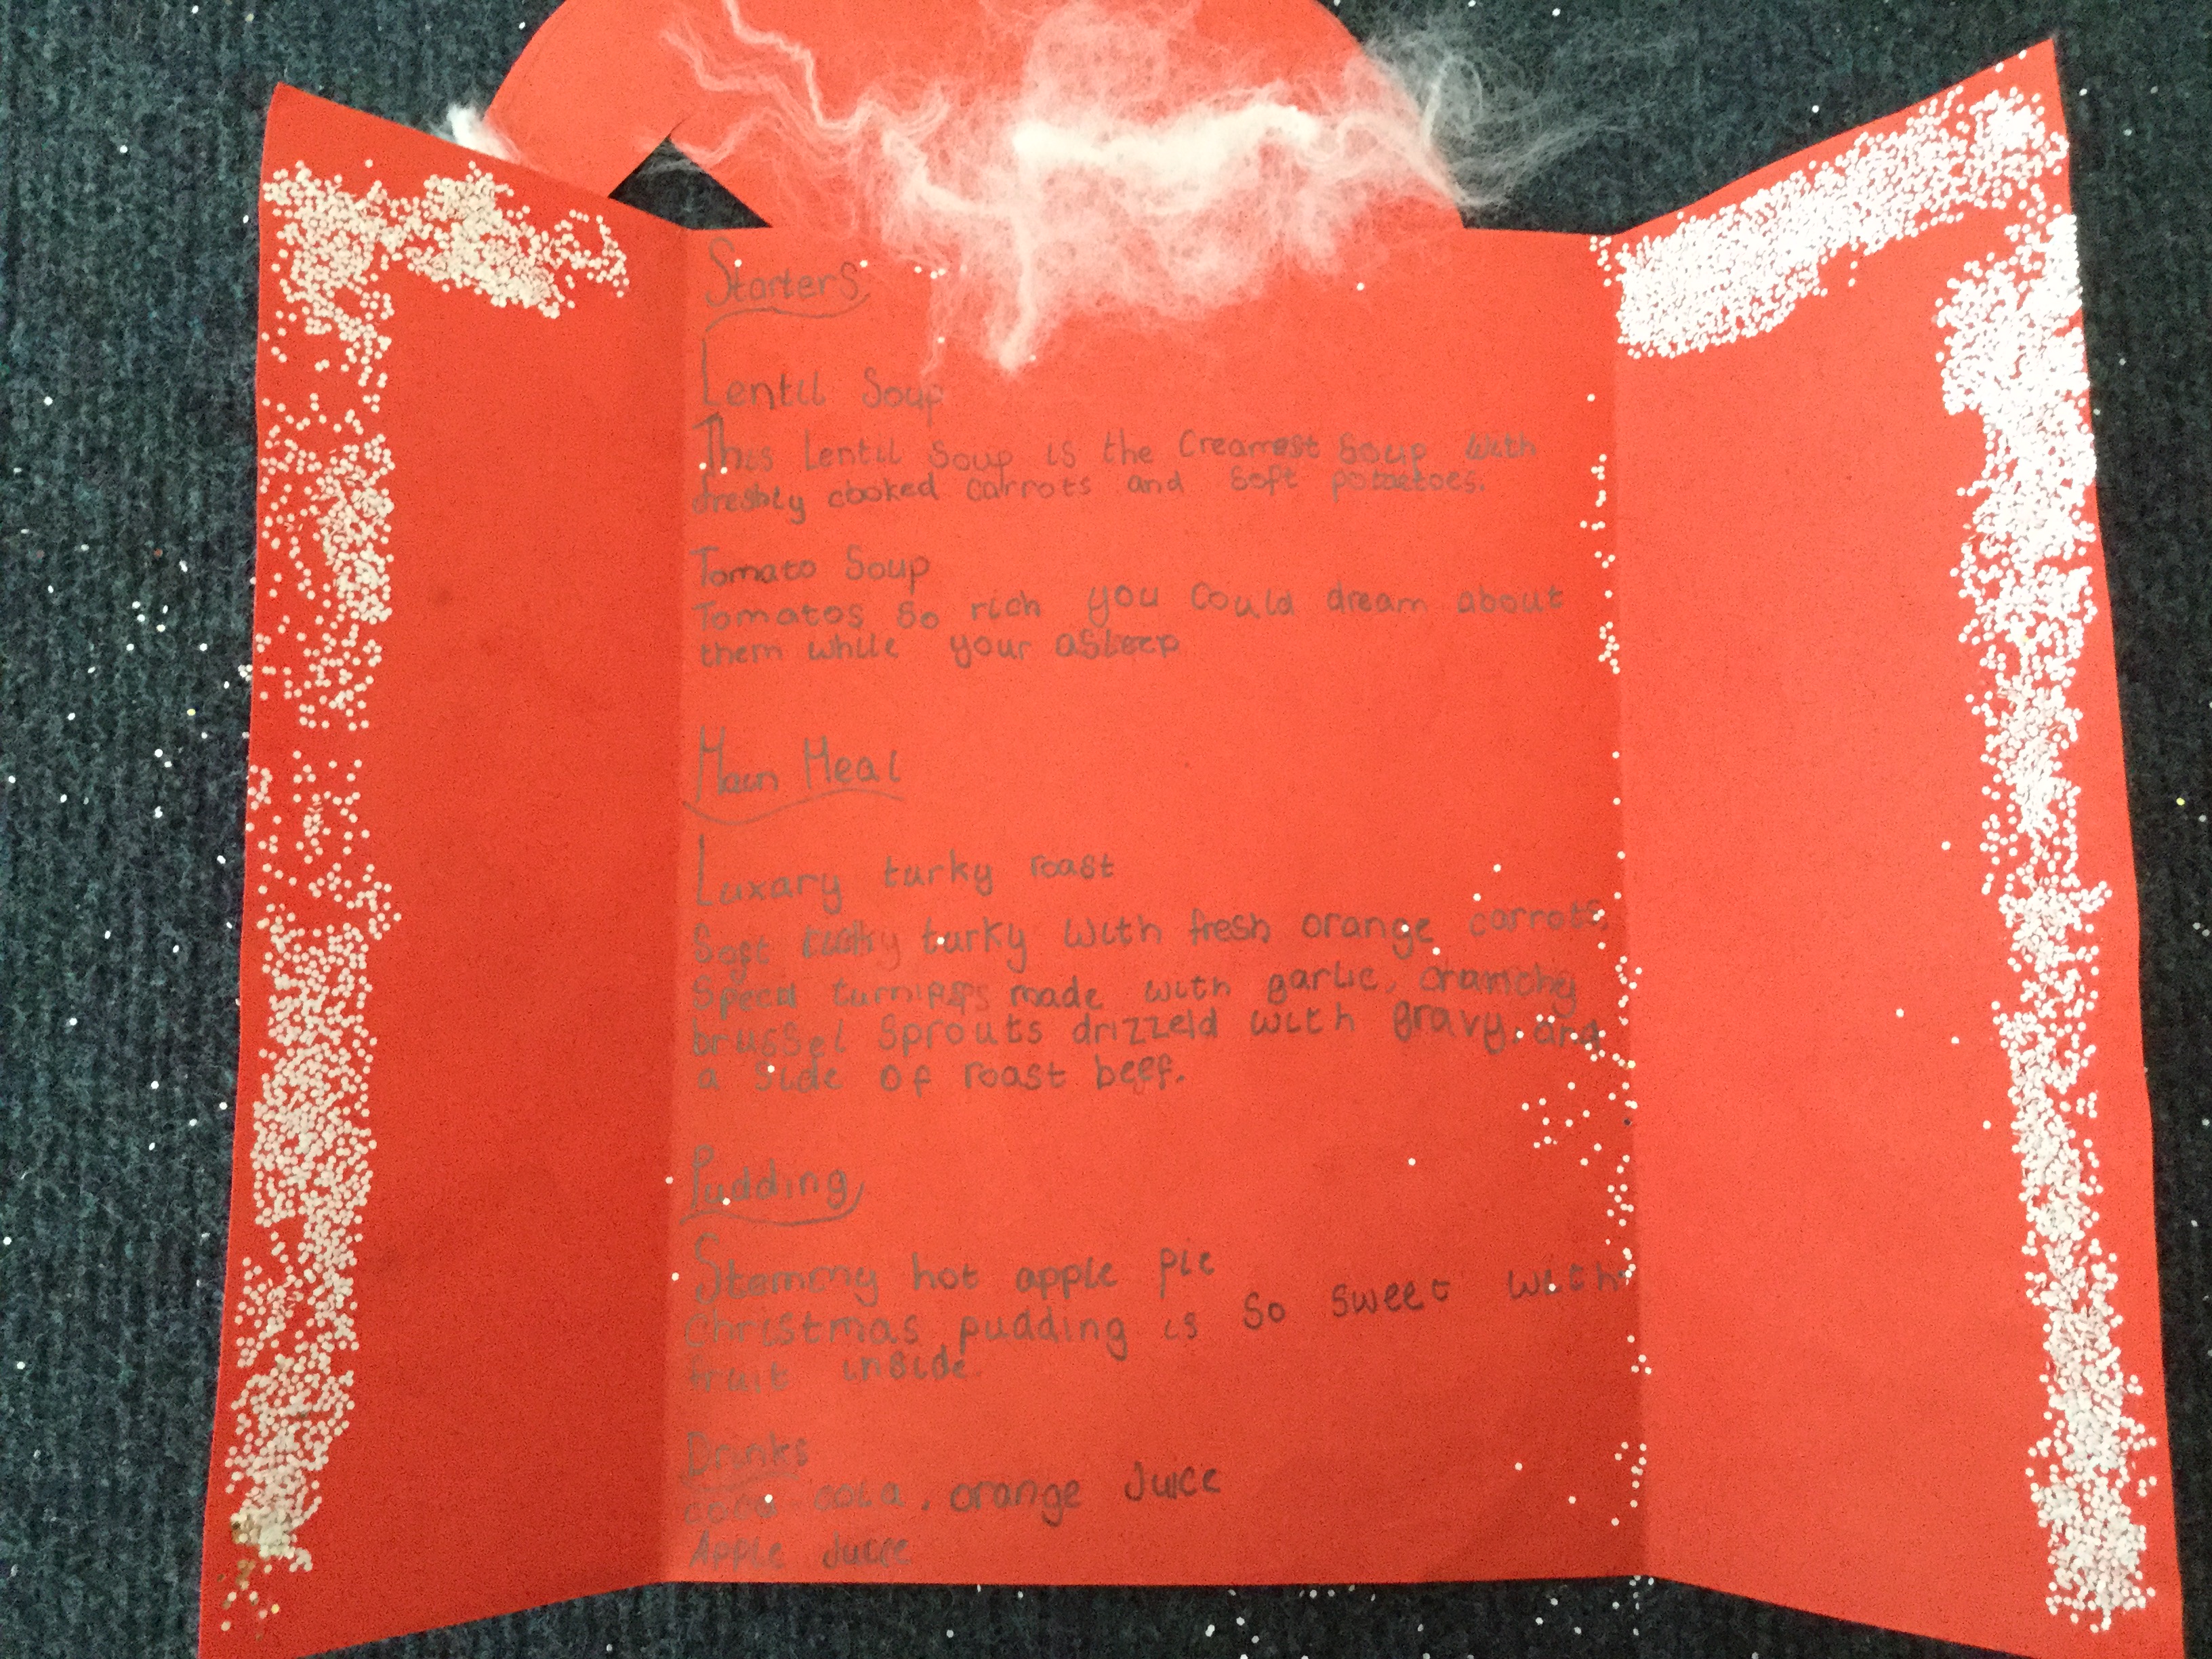 Starters
Lentil Soup
This Lentil Soup is the Creamest Soup with
freshly cooked carrots and Soft potaetoes.
Tomato Soup
Tomatos So rich you Could dream about
them while your asleep
Main Meal
Luxary turky roast
Soft turky with fresh orange carrots,
Specil turnips made with garlic, crunchy
brussel Sprouts drizzeld with gravy, and
a Side OF roast beef.
Pudding
Stemmy hot apple pie
Christmas pudding is So Sweet with
fruit inside.
Drinks
coca cola, orange Juice
Apple Juice